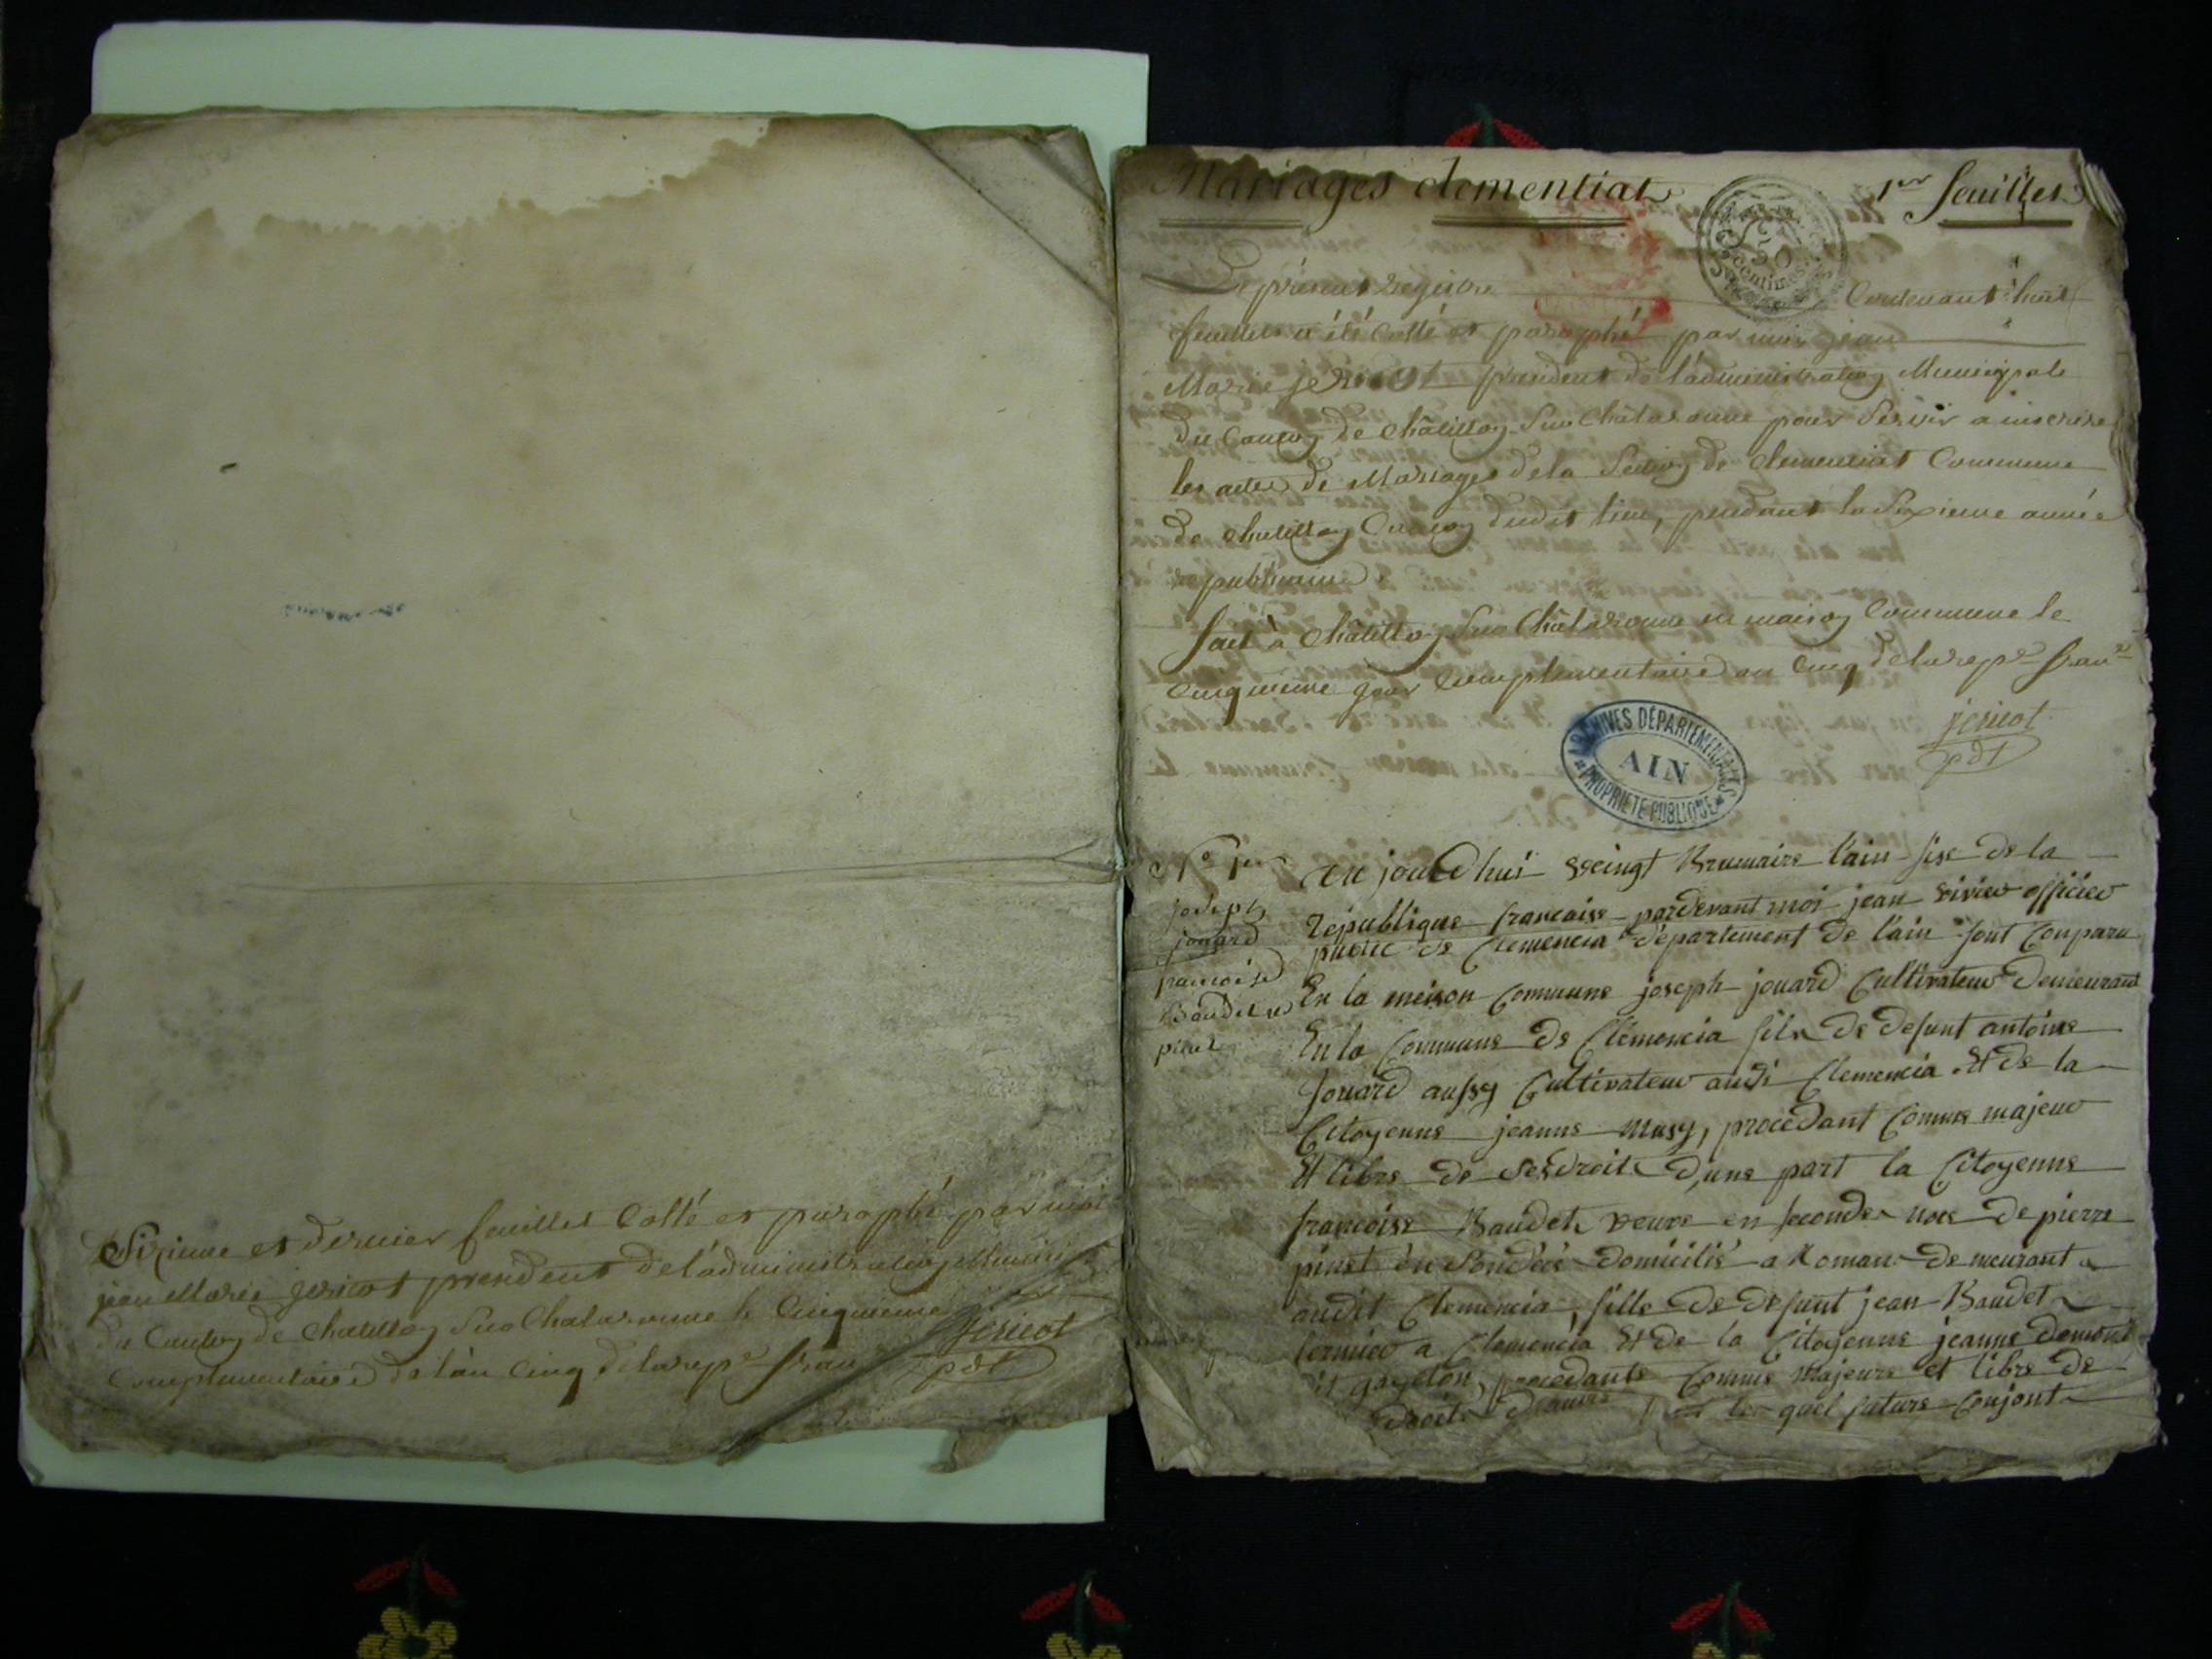 Sixieme et dernier feuillet Cotté et paraphé par moi
jean Marie jericot president de l'administration Munici
du Canton de Chatillon Sur Chalaronne le Cinquieme
Complementaire de l'an Cinq de la rep.e fran
jericot
pdt
Mariages clementiat
1er feuillet
50
centimes
Le présent Registre Contenant huit
feuillets a été Cotté et paraphé par moi jean
Marie jericot president de l'administration Municipale
du Canton de Châtillon Sur Chalaronne pour Servir a inscrire
les actes de Mariages de la Section de Clementiat Commune
de Chatillon Canton dudit lieu, pendant la Sixieme année
republicaine
fait à Châtillon Sur Chalaronne en maison Commune le
Cinquieme jour Complementaire an Cinq de la rep.e fran.se
jericot
pdt
ARCHIVES DÉPARTEMENTALES
AIN
PROPRIÉTÉ PUBLIQUE
N° 1er
joseph
jouard
francoise
Baudet ve
pinet
au jourdhui veingt Brumaire l'ain sixe de la
république francaise pardevant moi jean officier
public de Clemencia département de l'ain sont Conparu
En la meison Commune joseph jouard Cultivateur Demeurant
En la Commune de Clemencia fils de defunt antoine
Jouard aussy Cultivateur audi Clemencia Et de la
Citoyenne jeanne Musy, procedant Comme majeur
Et libre de Ses droits D'une part la Citoyenne
francoise Baudet veuve en seconde noce de pierre
pinet domicilié a Roman demeurant
audit Clemencia, fille de defunt jean Baudet
fermier a Clemencia Et de la Citoyenne jeanne
procedante Comme Majeure et libre de
droits D'autre lesquel future Conjont